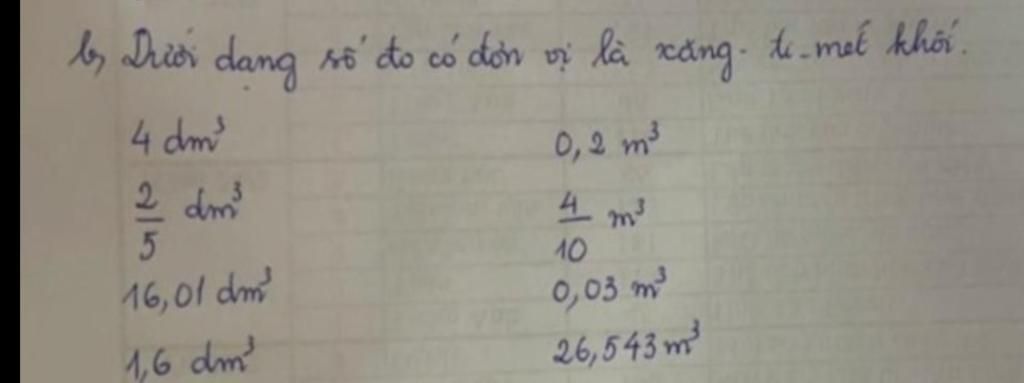 b, Dưới dạng số đo có đơn vị là xăng-ti-mét khối.
4 dm³ 0,2 m³
2/5 dm³ 4/10 m³
16,01 dm³ 0,03 m³
1,6 dm³ 26,543 m³